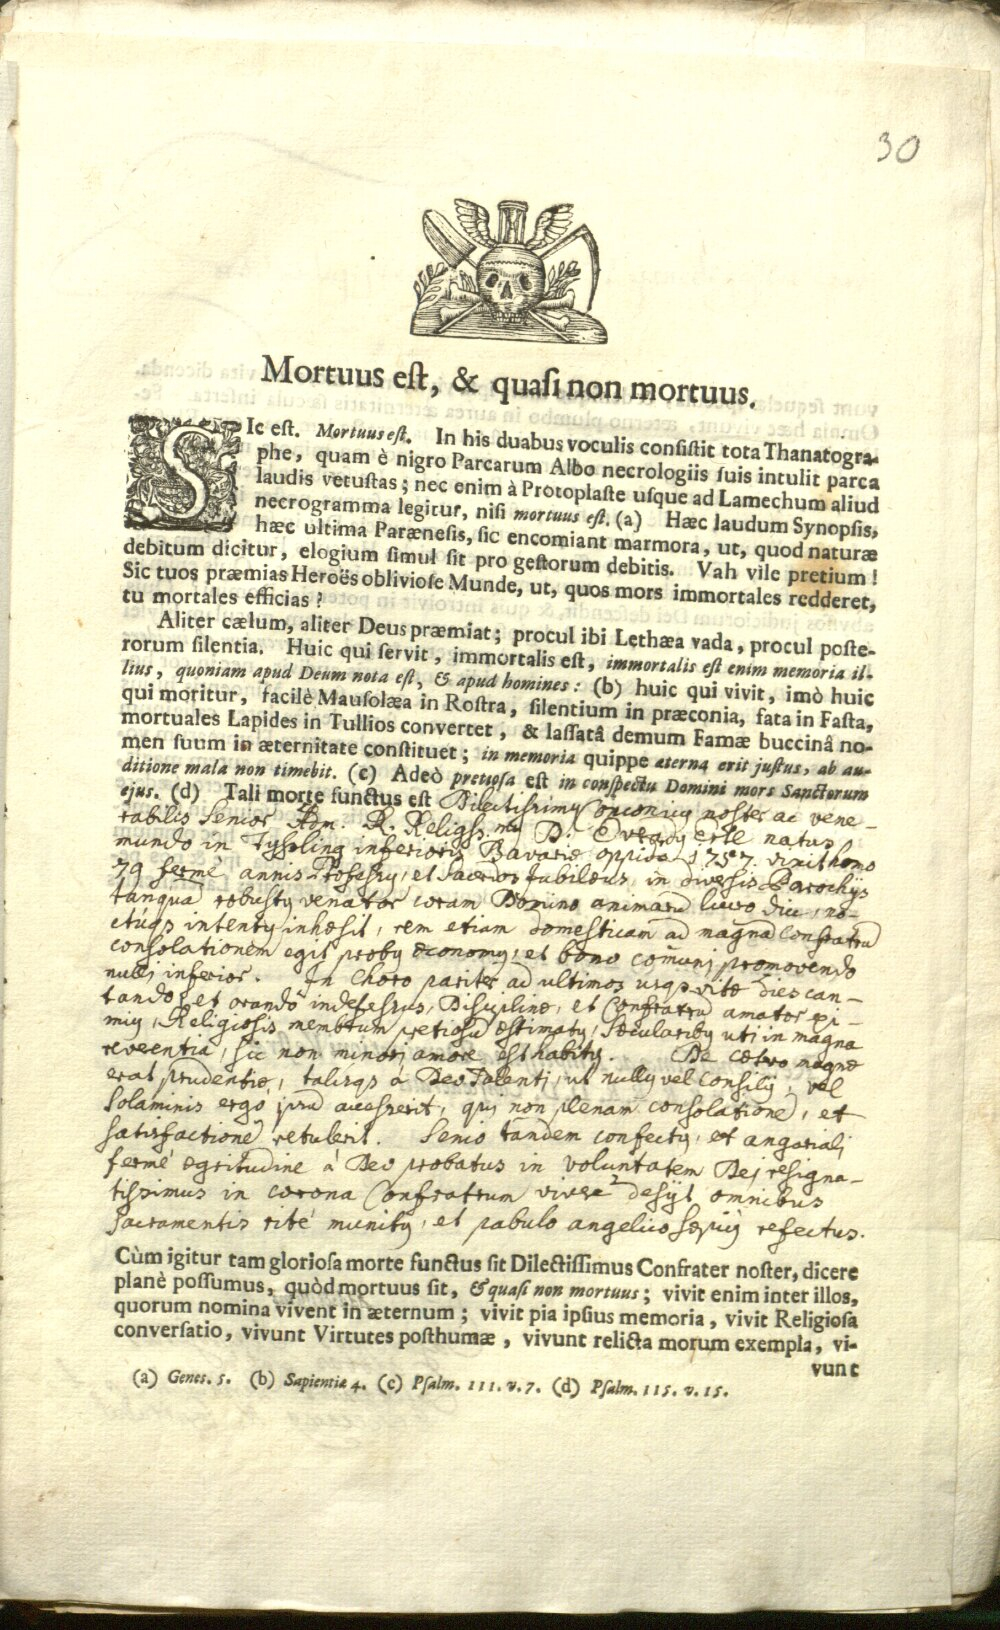 30
Mortuus est, & quasi non mortuus.
SIc est. Mortuus est. In his duabus voculis consistit tota Thanatogra-
phe, quam è nigro Parcarum Albo necrologiis suis intulit parca
laudis vetustas; nec enim à Protoplaste usque ad Lamechum aliud
necrogramma legitur, nisi mortuus est. (a) Hæc laudum Synopsis,
hæc ultima Parænesis, sic encomiant marmora, ut, quod naturæ
debitum dicitur, elogium simul sit pro gestorum debitis. Vah vile pretium!
Sic tuos præmias Heroës obliviose Munde, ut, quos mors immortales redderet,
tu mortales efficias?
Aliter cælum, aliter Deus præmiat; procul ibi Lethæa vada, procul poste-
rorum silentia. Huic qui servit, immortalis est, immortalis est enim memoria il-
lius, quoniam apud Deum nota est, & apud homines: (b) huic qui vivit, imò huic
qui moritur, facilè Mausolæa in Rostra, silentium in præconia, fata in Fasta,
mortuales Lapides in Tullios convertet, & lassatâ demum Famæ buccinâ no-
men suum in æternitate constituet; in memoria quippe æterna erit justus, ab au-
ditione mala non timebit. (c) Adeò pretiosa est in conspectu Domini mors Sanctorum
ejus. (d) Tali morte functus est Dilectissimus Canonicus noster ac vene-
rabilis Senior Adm. R. Religss.mus D. Everdus Ertl natus
mundo in Tyssling inferioris Bavariæ oppido vixit hono
79 fermè annis Professus, et Sacerdos Jubilæus, in diversis Parochijs
tanquã robustus venator coram Domino animarũ lucro diu, no-
ctuq3 intentus inhæsit, rem etiam domesticam ad magnã Confratrũ
consolationem egit probus œconomus, et bono cõmuni promovendo
nulli inferior. In Choro pariter ad ultimos usq3 vitæ dies can-
tando, et orando indefessus, Disciplinæ, et Confratrũ amator exi-
mius, Religiosis membrum pretiosũ æstimatus, Sæcularibus uti in magna
reverentia, sic non minori amore est habitus. De cætero magnæ
erat prudentiæ, talisq3 à Deo Talenti, ut nullus vel Consilij, vel
Solaminis ergò ipsũ accesserit, qui non plenam consolationẽ, et
satisfactionẽ retulerit. Senio tandem confectus, et angariali
fermè ægritudine à Deo probatus in voluntatem Dei resigna-
tissimus in corona Confratrum vivere desijt omnibus
Sacramentis ritè munitus, et pabulo angelico sæpius refectus.
Cùm igitur tam gloriosa morte functus sit Dilectissimus Confrater noster, dicere
planè possumus, quòd mortuus sit, & quasi non mortuus; vivit enim inter illos,
quorum nomina vivent in æternum; vivit pia ipsius memoria, vivit Religiosa
conversatio, vivunt Virtutes posthumæ, vivunt relicta morum exempla, vi-
vunt
(a) Genes. 5. (b) Sapientiæ 4. (c) Psalm. 111. v. 7. (d) Psalm. 115. v. 15.